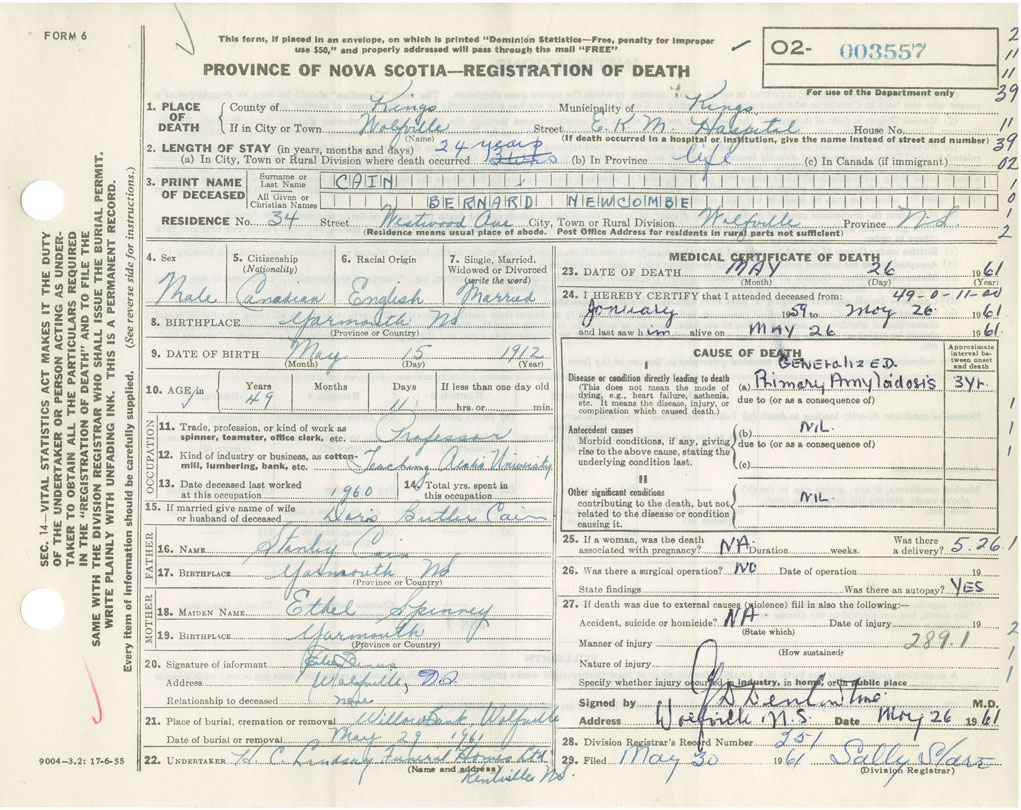 FORM 6
This form, if placed in an envelope, on which is printed "Dominion Statistics—Free, penalty for improper
use $50," and properly addressed will pass through the mail "FREE"
PROVINCE OF NOVA SCOTIA—REGISTRATION OF DEATH
02- 003557
For use of the Department only
2
11
11
39
11
39
02
1
0
1
2
SEC. 14—VITAL STATISTICS ACT MAKES IT THE DUTY
OF THE UNDERTAKER OR PERSON ACTING AS UNDER-
TAKER TO OBTAIN ALL THE PARTICULARS REQUIRED
IN THE "REGISTRATION OF DEATH" AND TO FILE THE
SAME WITH THE DIVISION REGISTRAR WHO SHALL ISSUE THE BURIAL PERMIT.
WRITE PLAINLY WITH UNFADING INK. THIS IS A PERMANENT RECORD.
Every item of information should be carefully supplied. (See reverse side for instructions.)
1. PLACE OF DEATH County of Kings Municipality of Kings
If in City or Town Wolfville Street E. K. M. Hospital House No.
(Name) (If death occurred in a hospital or institution, give the name instead of street and number)
2. LENGTH OF STAY (in years, months and days) 24 years
(a) In City, Town or Rural Division where death occurred (b) In Province life (c) In Canada (if immigrant)
3. PRINT NAME OF DECEASED Surname or Last Name CAIN
All Given or Christian Names BERNARD NEWCOMBE
RESIDENCE No. 34 Street Westwood Ave City, Town or Rural Division Wolfville Province N.S.
(Residence means usual place of abode. Post Office Address for residents in rural parts not sufficient)
4. Sex 5. Citizenship (Nationality) 6. Racial Origin 7. Single, Married, Widowed or Divorced (write the word)
Male Canadian English Married
8. BIRTHPLACE Yarmouth NS
(Province or Country)
9. DATE OF BIRTH May 15 1912
(Month) (Day) (Year)
10. AGE in Years Months Days If less than one day old
49 11 hrs. or min.
OCCUPATION
11. Trade, profession, or kind of work as spinner, teamster, office clerk, etc. Professor
12. Kind of industry or business, as cotton-mill, lumbering, bank, etc. Teaching Acadia University
13. Date deceased last worked at this occupation 1960 14. Total yrs. spent in this occupation
15. If married give name of wife or husband of deceased Doris Butler Cain
FATHER
16. NAME Stanley Cain
17. BIRTHPLACE Yarmouth NS
(Province or Country)
MOTHER
18. MAIDEN NAME Ethel Spinney
19. BIRTHPLACE Yarmouth
(Province or Country)
20. Signature of informant
Address Wolfville,
Relationship to deceased none
21. Place of burial, cremation or removal Willow Bank, Wolfville
Date of burial or removal May 29 1961
22. UNDERTAKER H. C. Lindsay Funeral Home Ltd
(Name and address) Kentville NS.
9004—3.2: 17-6-55
MEDICAL CERTIFICATE OF DEATH
23. DATE OF DEATH MAY 26 1961
(Month) (Day) (Year)
24. I HEREBY CERTIFY that I attended deceased from: 49-0-11-00
January 1959 to May 26 1961
and last saw him alive on MAY 26 1961
CAUSE OF DEATH
Approximate interval between onset and death
I
Disease or condition directly leading to death
(This does not mean the mode of dying, e.g., heart failure, asthenia, etc. It means the disease, injury, or complication which caused death.)
GENERALIZED.
(a) Primary Amyloidosis 3Yr.
due to (or as a consequence of)
Antecedent causes
Morbid conditions, if any, giving rise to the above cause, stating the underlying condition last.
(b) NIL.
due to (or as a consequence of)
(c)
II
Other significant conditions
contributing to the death, but not related to the disease or condition causing it.
NIL.
25. If a woman, was the death associated with pregnancy? NA. Duration weeks. Was there a delivery? 5.26.1
26. Was there a surgical operation? NO Date of operation 19
State findings Was there an autopsy? YES
27. If death was due to external causes (violence) fill in also the following:—
Accident, suicide or homicide? NA. Date of injury 19
(State which)
Manner of injury 289.1
(How sustained)
Nature of injury
Specify whether injury occurred in industry, in home, or in public place
Signed by M.D.
Address Wolfville, N.S. Date May 26 1961
28. Division Registrar's Record Number 251
29. Filed May 30 1961 Sally
(Division Registrar)
1
1
1
1
2
1
1